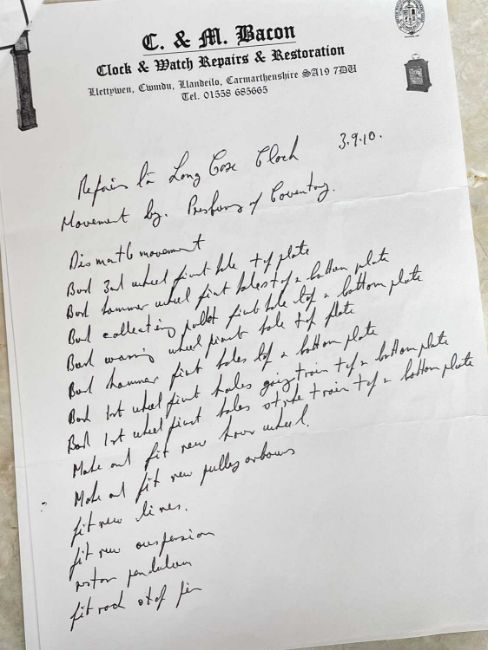 C. & M. Bacon
Clock & Watch Repairs & Restoration
Llettywen, Cwmdu, Llandeilo, Carmarthenshire SA19 7DU
Tel. 01558 685665
Repairs to Long Case Clock 3.9.10.
Movement by. of Coventry.
Dismantle movement
Bush 3rd wheel pivot hole top plate
Bush hammer wheel pivot holes top & bottom plate
Bush collecting pallet pivot hole top & bottom plate
Bush warning wheel pivot hole top plate
Bush hammer pivot holes top & bottom plate
Bush 1st wheel pivot holes going train top & bottom plate
Bush 1st wheel pivot holes strike train top & bottom plate
Make and fit new hour wheel.
Make and fit new pulley arbours
fit new lines.
fit new suspension
restore pendulum
fit rack stop pin